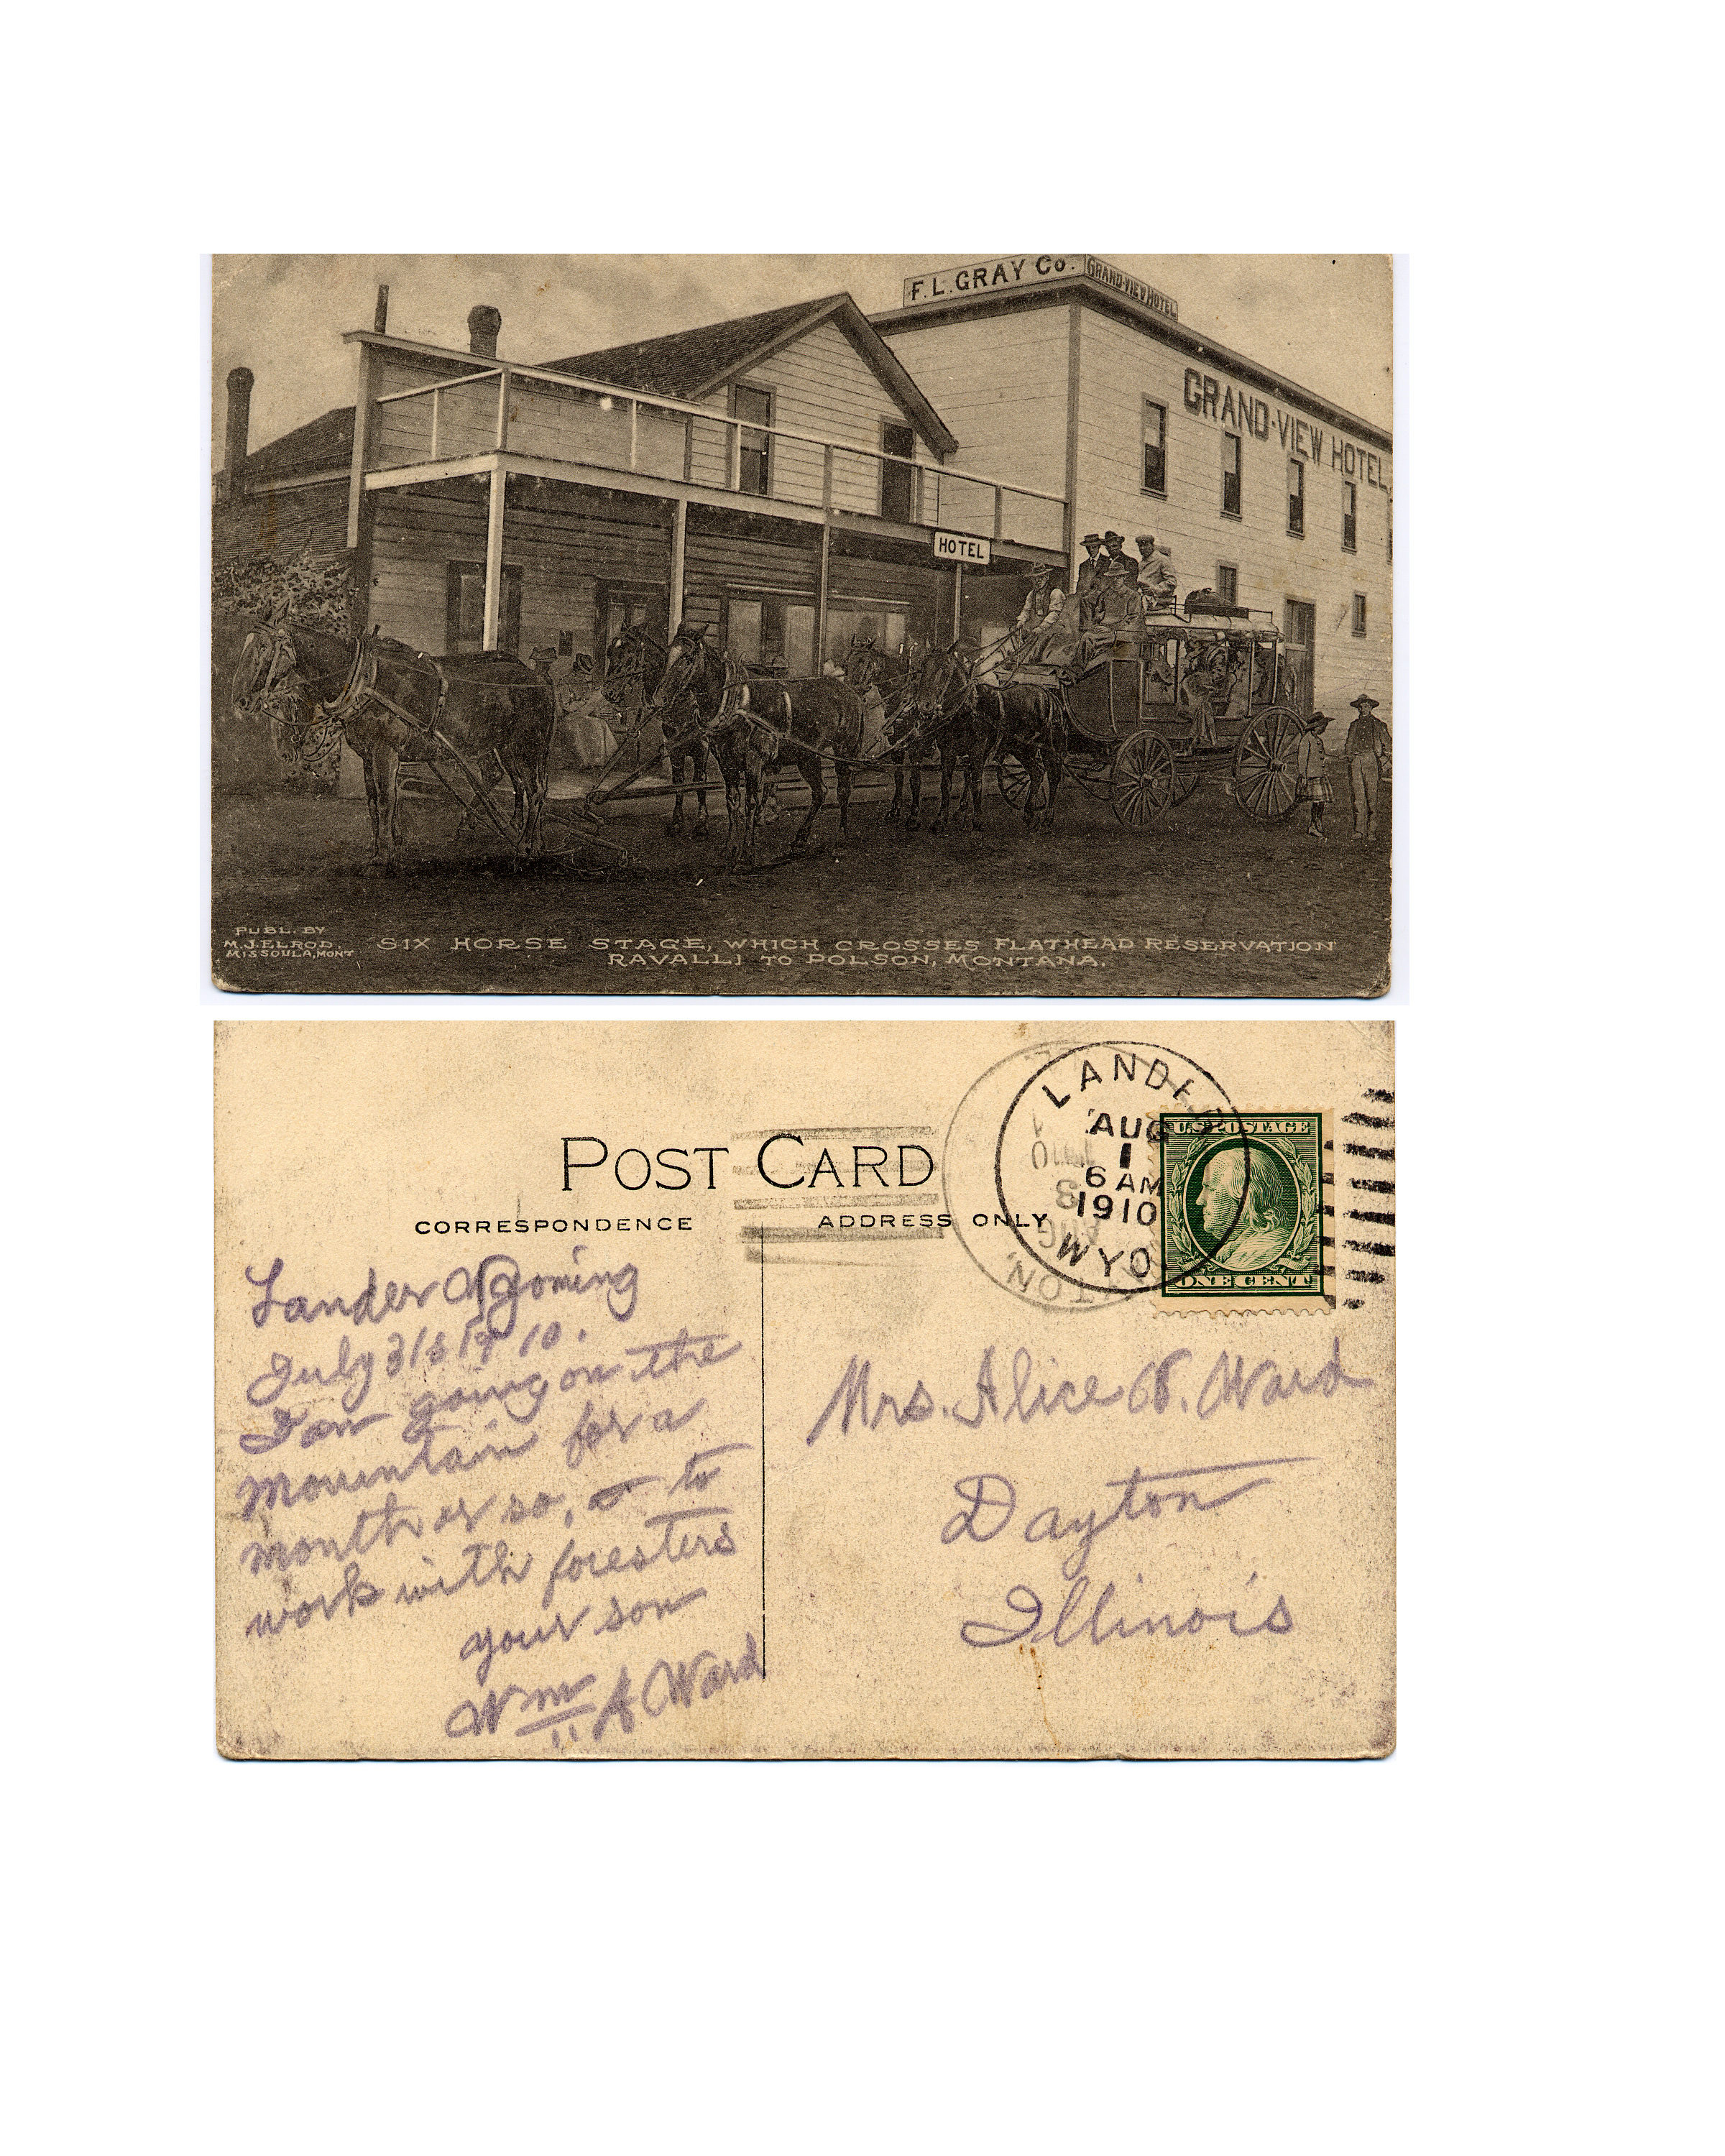 F.L. GRAY Co.
GRAND-VIEW HOTEL
GRAND-VIEW HOTEL
HOTEL
PUBL. BY
M.J. ELROD,
MISSOULA, MONT
SIX HORSE STAGE, WHICH CROSSES FLATHEAD RESERVATION
RAVALLI TO POLSON, MONTANA.
POST CARD
CORRESPONDENCE
ADDRESS ONLY
LANDER
AUG
1
6 AM
1910
WYO
AUG
3
1910
U.S. POSTAGE
ONE CENT
Lander Wyoming
July 31st 1910.
I am going on the
mountain for a
month or so, to
work with foresters
your son
Wm A Ward
Mrs. Alice Ward
Dayton
Illinois